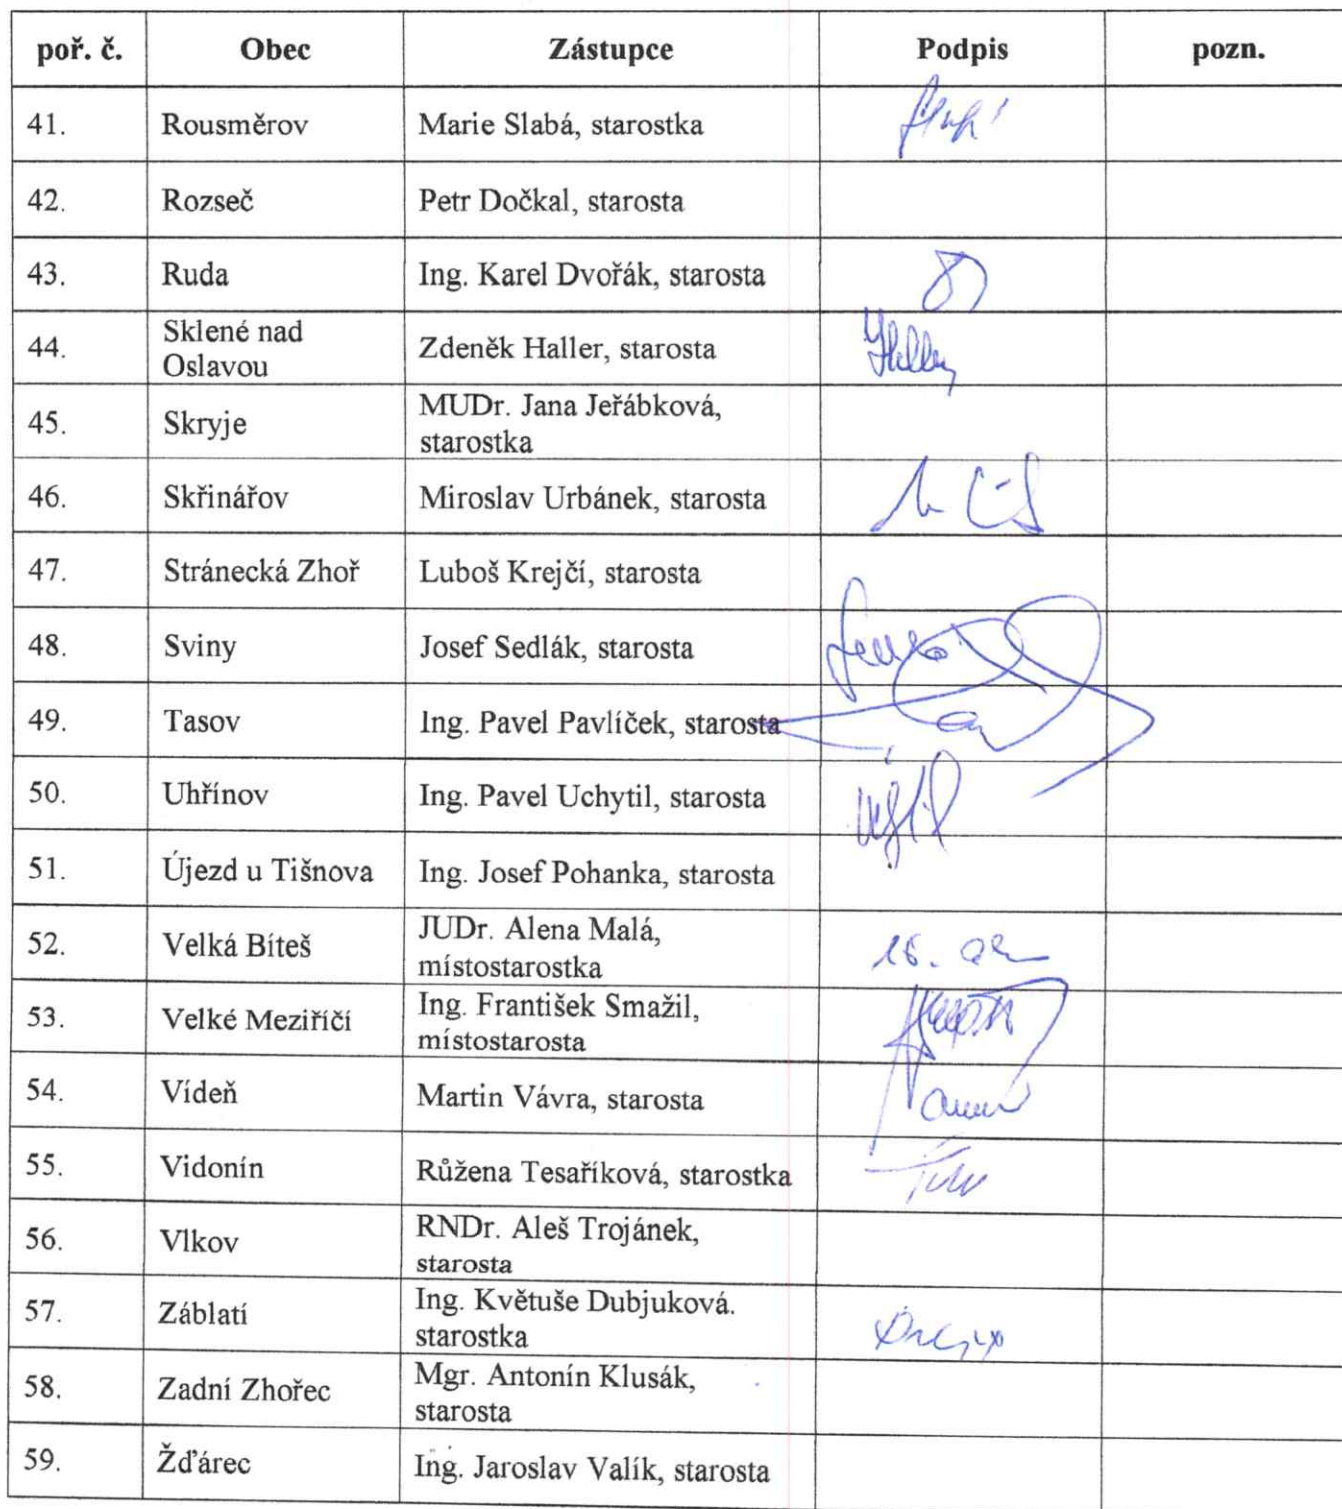 poř. č. Obec Zástupce Podpis pozn.
41. Rousměrov Marie Slabá, starostka
42. Rozseč Petr Dočkal, starosta
43. Ruda Ing. Karel Dvořák, starosta
44. Sklené nad
Oslavou Zdeněk Haller, starosta
45. Skryje MUDr. Jana Jeřábková,
starostka
46. Skřinářov Miroslav Urbánek, starosta
47. Stránecká Zhoř Luboš Krejčí, starosta
48. Sviny Josef Sedlák, starosta
49. Tasov Ing. Pavel Pavlíček, starosta
50. Uhřínov Ing. Pavel Uchytil, starosta
51. Újezd u Tišnova Ing. Josef Pohanka, starosta
52. Velká Bíteš JUDr. Alena Malá,
místostarostka
53. Velké Meziříčí Ing. František Smažil,
místostarosta
54. Vídeň Martin Vávra, starosta
55. Vidonín Růžena Tesaříková, starostka
56. Vlkov RNDr. Aleš Trojánek,
starosta
57. Záblatí Ing. Květuše Dubjuková.
starostka
58. Zadní Zhořec Mgr. Antonín Klusák,
starosta
59. Žďárec Ing. Jaroslav Valík, starosta